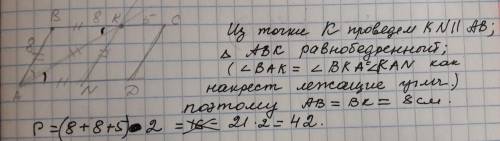 B 8 K 5 C
8
A N D
Из точки K проведем KN || AB;
△ ABK равнобедренный;
(∠BAK = ∠BKA = ∠KAN как
накрест лежащие углы)
поэтому AB = BK = 8 см.
P = (8+8+5) · 2 = 21 · 2 = 42.